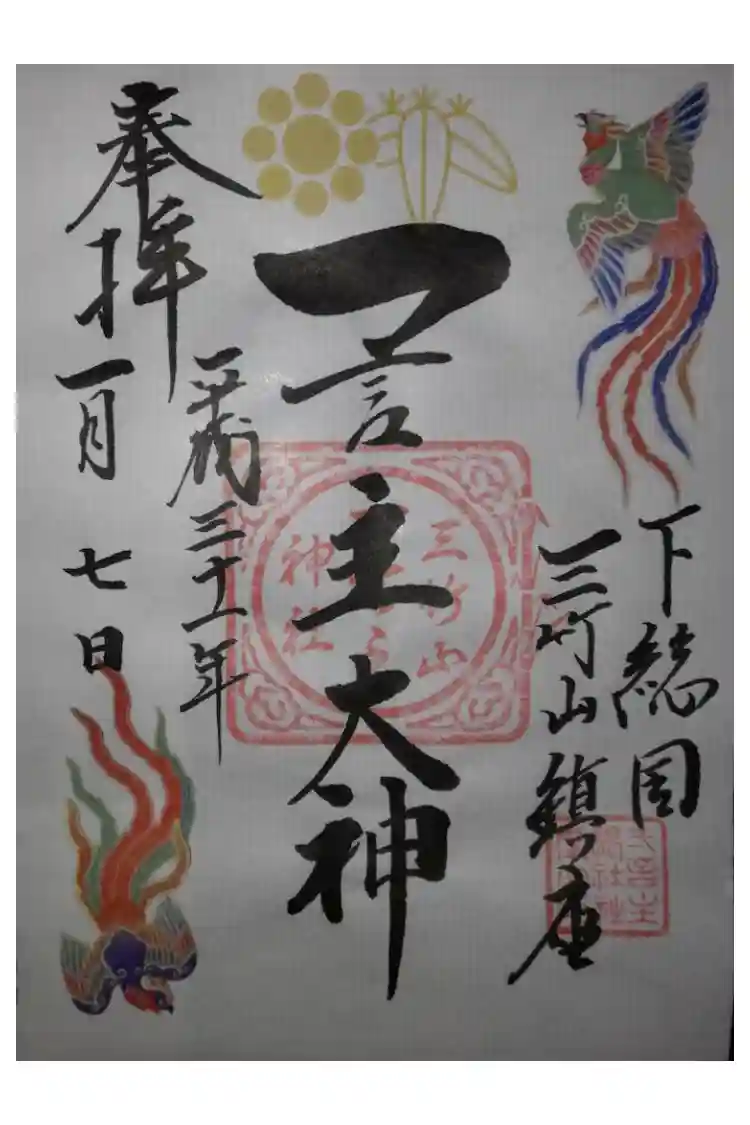 下総国
三竹山鎮座
一言主大神
三竹山
一言主
神社
平成三十一年
奉拝
一月七日